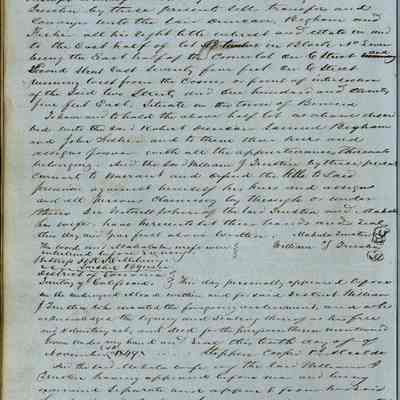 Trustin by these presents sell transfer and
Convey unto the said Duncan, Bigham and
Fisher all his right title interest and estate in and
to the East half of lot in Block No
being the East half of the Corner lot on E Street and
Second Street East Seventy five feet on E Street
running East from the Corner or point of intersection
of the Said two Streets and One hundred and twenty
five feet East. Situate in the town of Benicia
To have and to hold the above half lot as above described
unto the said Robert Duncan Samuel Bigham
and John Fisher and to them their heirs and
assigns forever with all the appurtenances thereunto
belonging. And the said William J Trustin by these presents
Covenant to Warrant and defend the title to Said
premises against himself his heirs and assigns
and all persons claiming by through or under
them. In Witness Whereof the said Trustin and Mahala
his wife have hereunto set their hands and Seal
this day and year first above written. Mahala Trustin
The word and Mahala his wife were William J Trustin
interlined before signing
Witness
District of
Territory of California This day personally appeared before
me the undersigned in and for said District William
J Trustin who executed the foregoing instrument and who
acknowledged the signing and Sealing thereof as his free
and voluntary act and deed for the purposes therein mentioned
Given under my hand and Seal this tenth day of
November 1849. Stephen Cooper
And the said Mahala wife of the said William J
Trustin having appeared before me and being
examined Separate and apart from her said